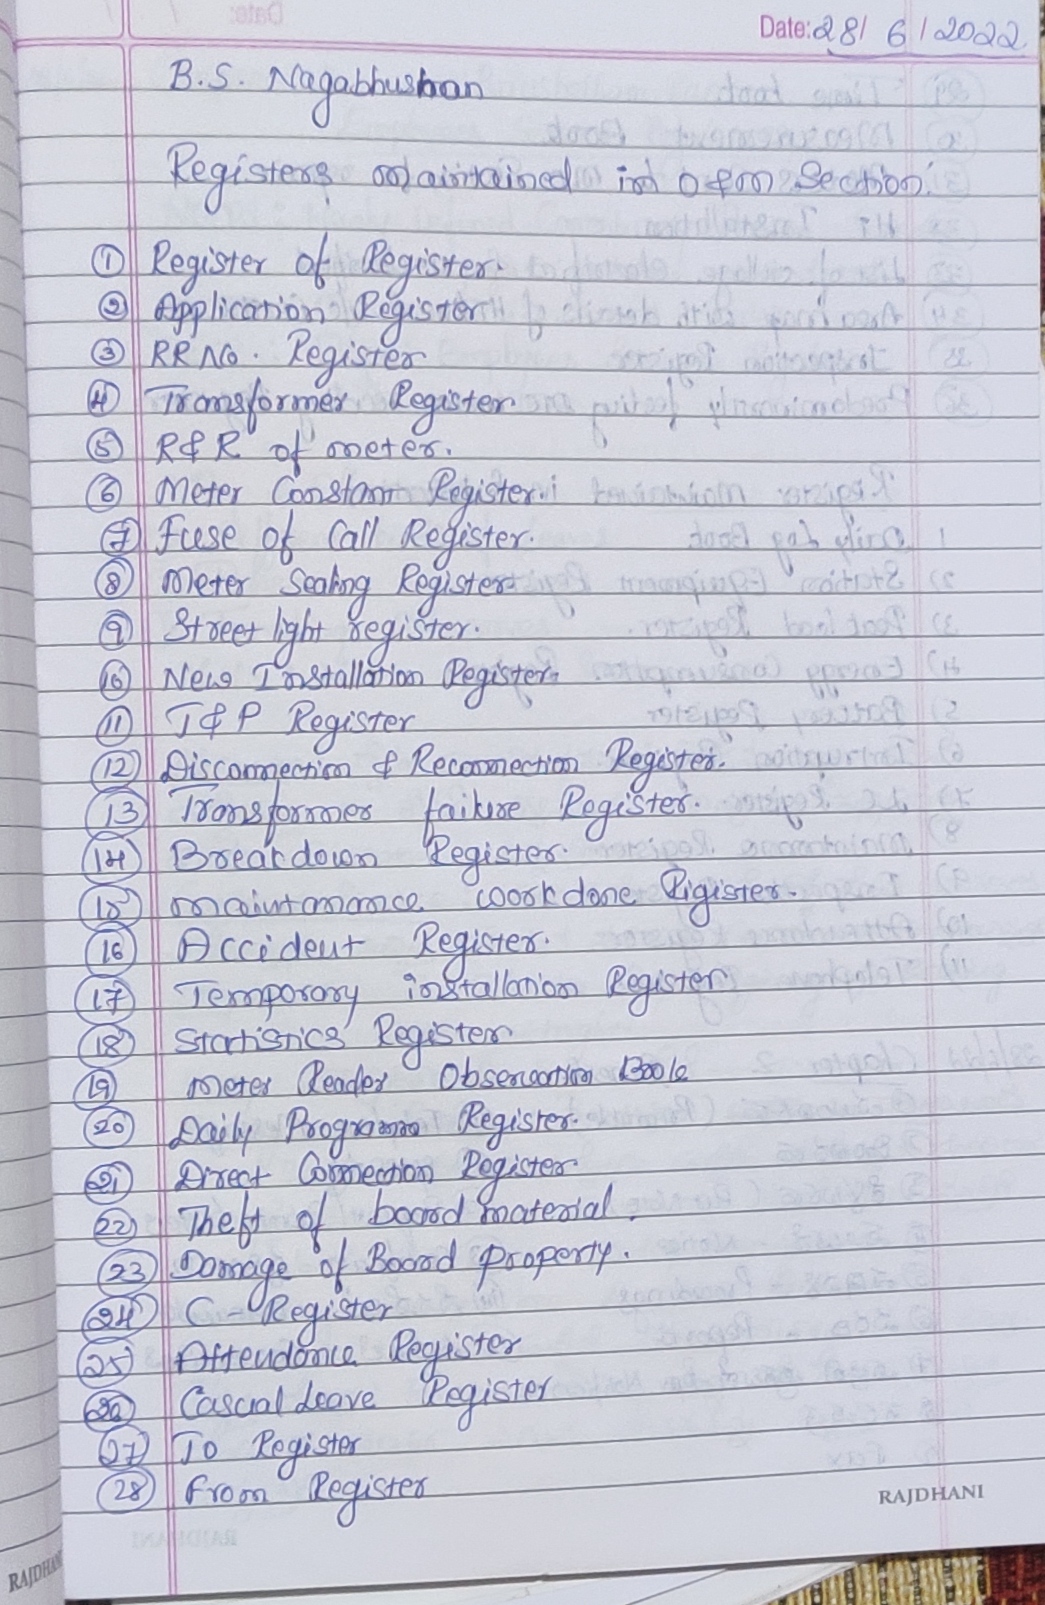 Date: 28/ 6/2022
B.S. Nagabhushan
Registers maintained in O&m Section.
① Register of Register.
② Application Register
③ RR No. Register
④ Transformer Register
⑤ R&R of meter.
⑥ Meter Constant Register
⑦ Fuse of Call Register.
⑧ Meter Sealing Register
⑨ Street light register.
⑩ New Installation Register
⑪ T&P Register
⑫ Disconnection & Reconnection Register.
⑬ Transformer failure Register.
⑭ Breakdown Register.
⑮ maintanance work done Rigister.
⑯ Accident Register.
⑰ Temporary installation Register
⑱ Statistics Register
⑲ Meter Reader Observation Book
⑳ Daily Programme Register.
㉑ Direct Connection Register
㉒ Theft of board material.
㉓ Damage of Board property.
㉔ C-Register
㉕ Attendance Register
㉖ Casual Leave Register
㉗ To Register
㉘ From Register
RAJDHANI